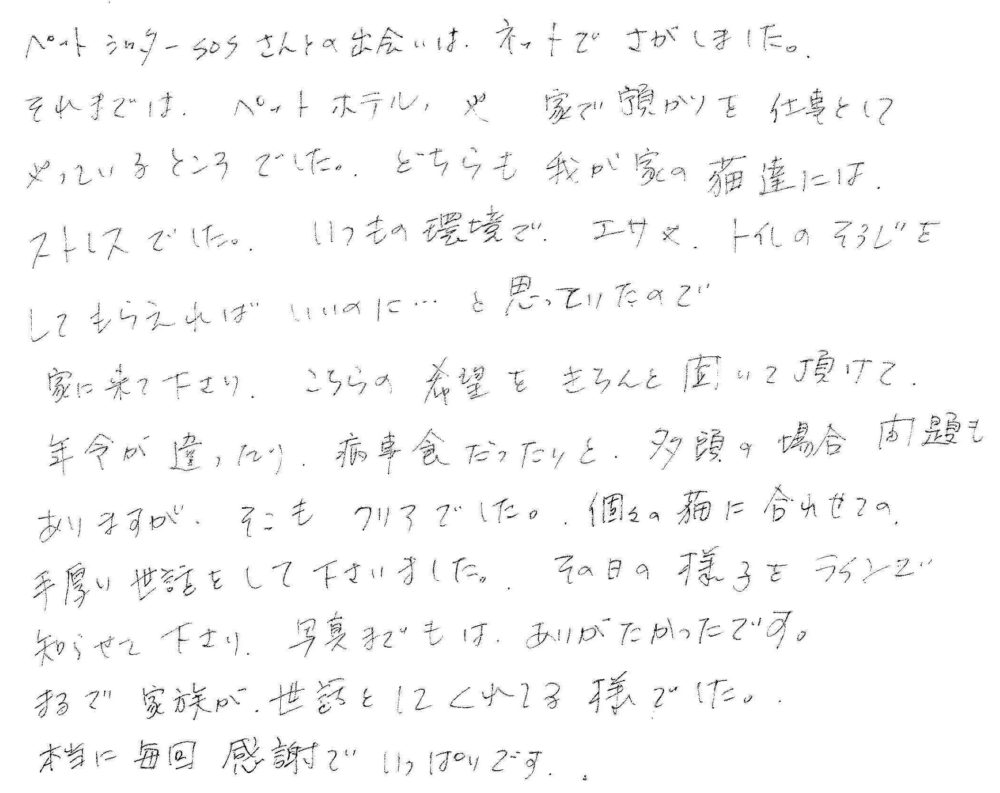 ペットシッターSOSさんとの出会いは、ネットでさがしました。
それまでは、ペットホテル、や 家で預かりを仕事として
やっているところでした。どちらも我が家の猫達には、
ストレスでした。いつもの環境で、エサや、トイレのそうじを
してもらえればいいのに…と思っていたので
家に来て下さり、こちらの希望をきちんと聞いて頂けて、
年令が違ったり、病車食だったりと、多頭の場合問題も
ありますが、そこもクリアでした。個々の猫に合わせての、
手厚い世話をして下さいました。その日の様子をラインで
知らせて下さり、写真までもは、ありがたかったです。
まるで家族が、世話をしてくれてる様でした。
本当に毎回感謝でいっぱいです。